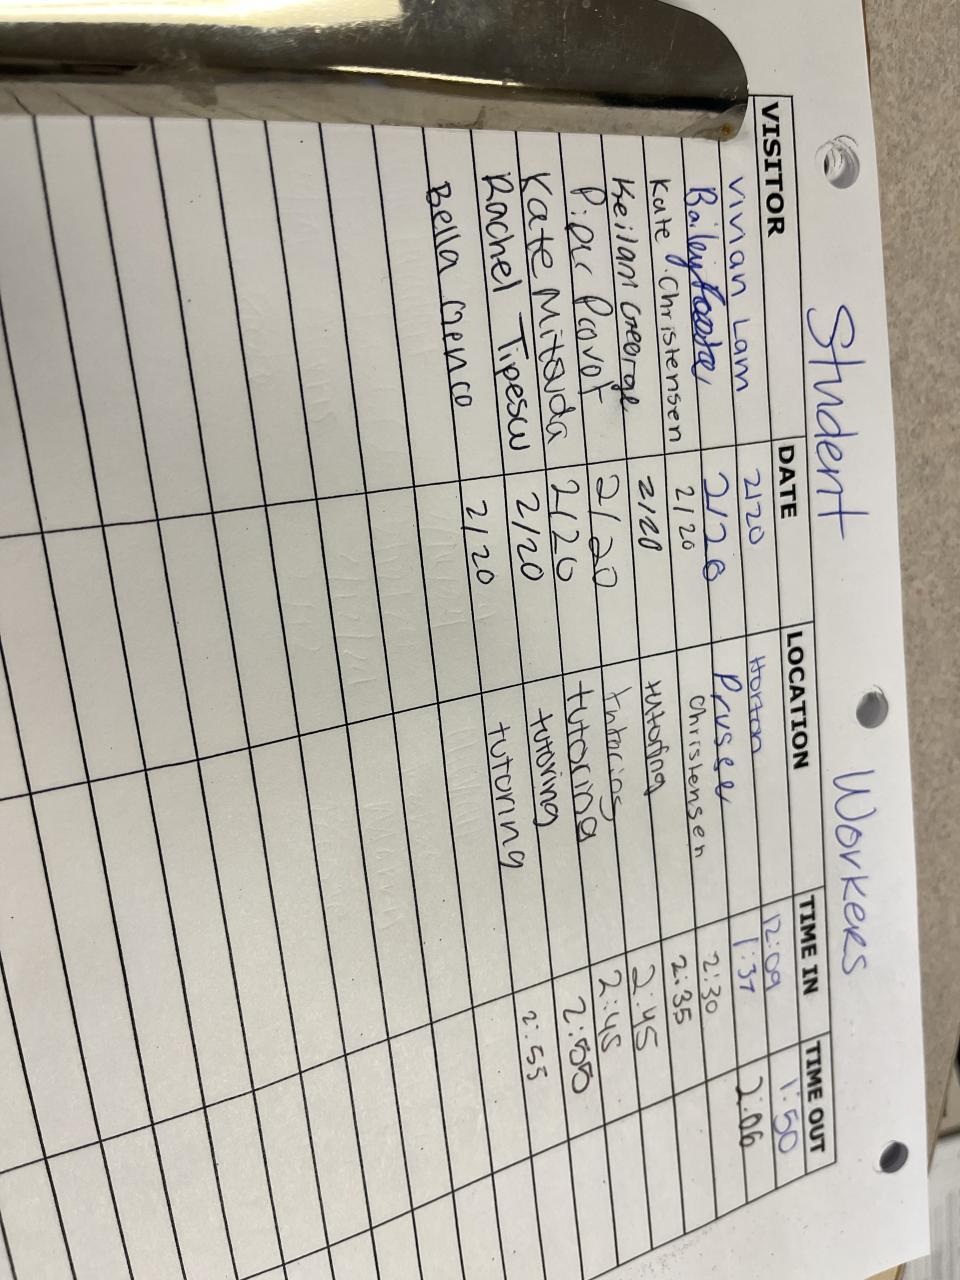 Student Workers
VISITOR DATE LOCATION TIME IN TIME OUT
Vivian Lam 2/20 Horton 12:09 1:50
Bailey 2/20 Prusse 1:37 2:06
Kate Christensen 2/20 Christensen 2:30
Keilani George 2/20 tutoring 2:35
Piper Parrot 2/20 tutoring 2:45
Kate 2/20 tutoring 2:45
Rachel Tipescu 2/20 tutoring 2:50
Bella Menco 2/20 tutoring 2:55